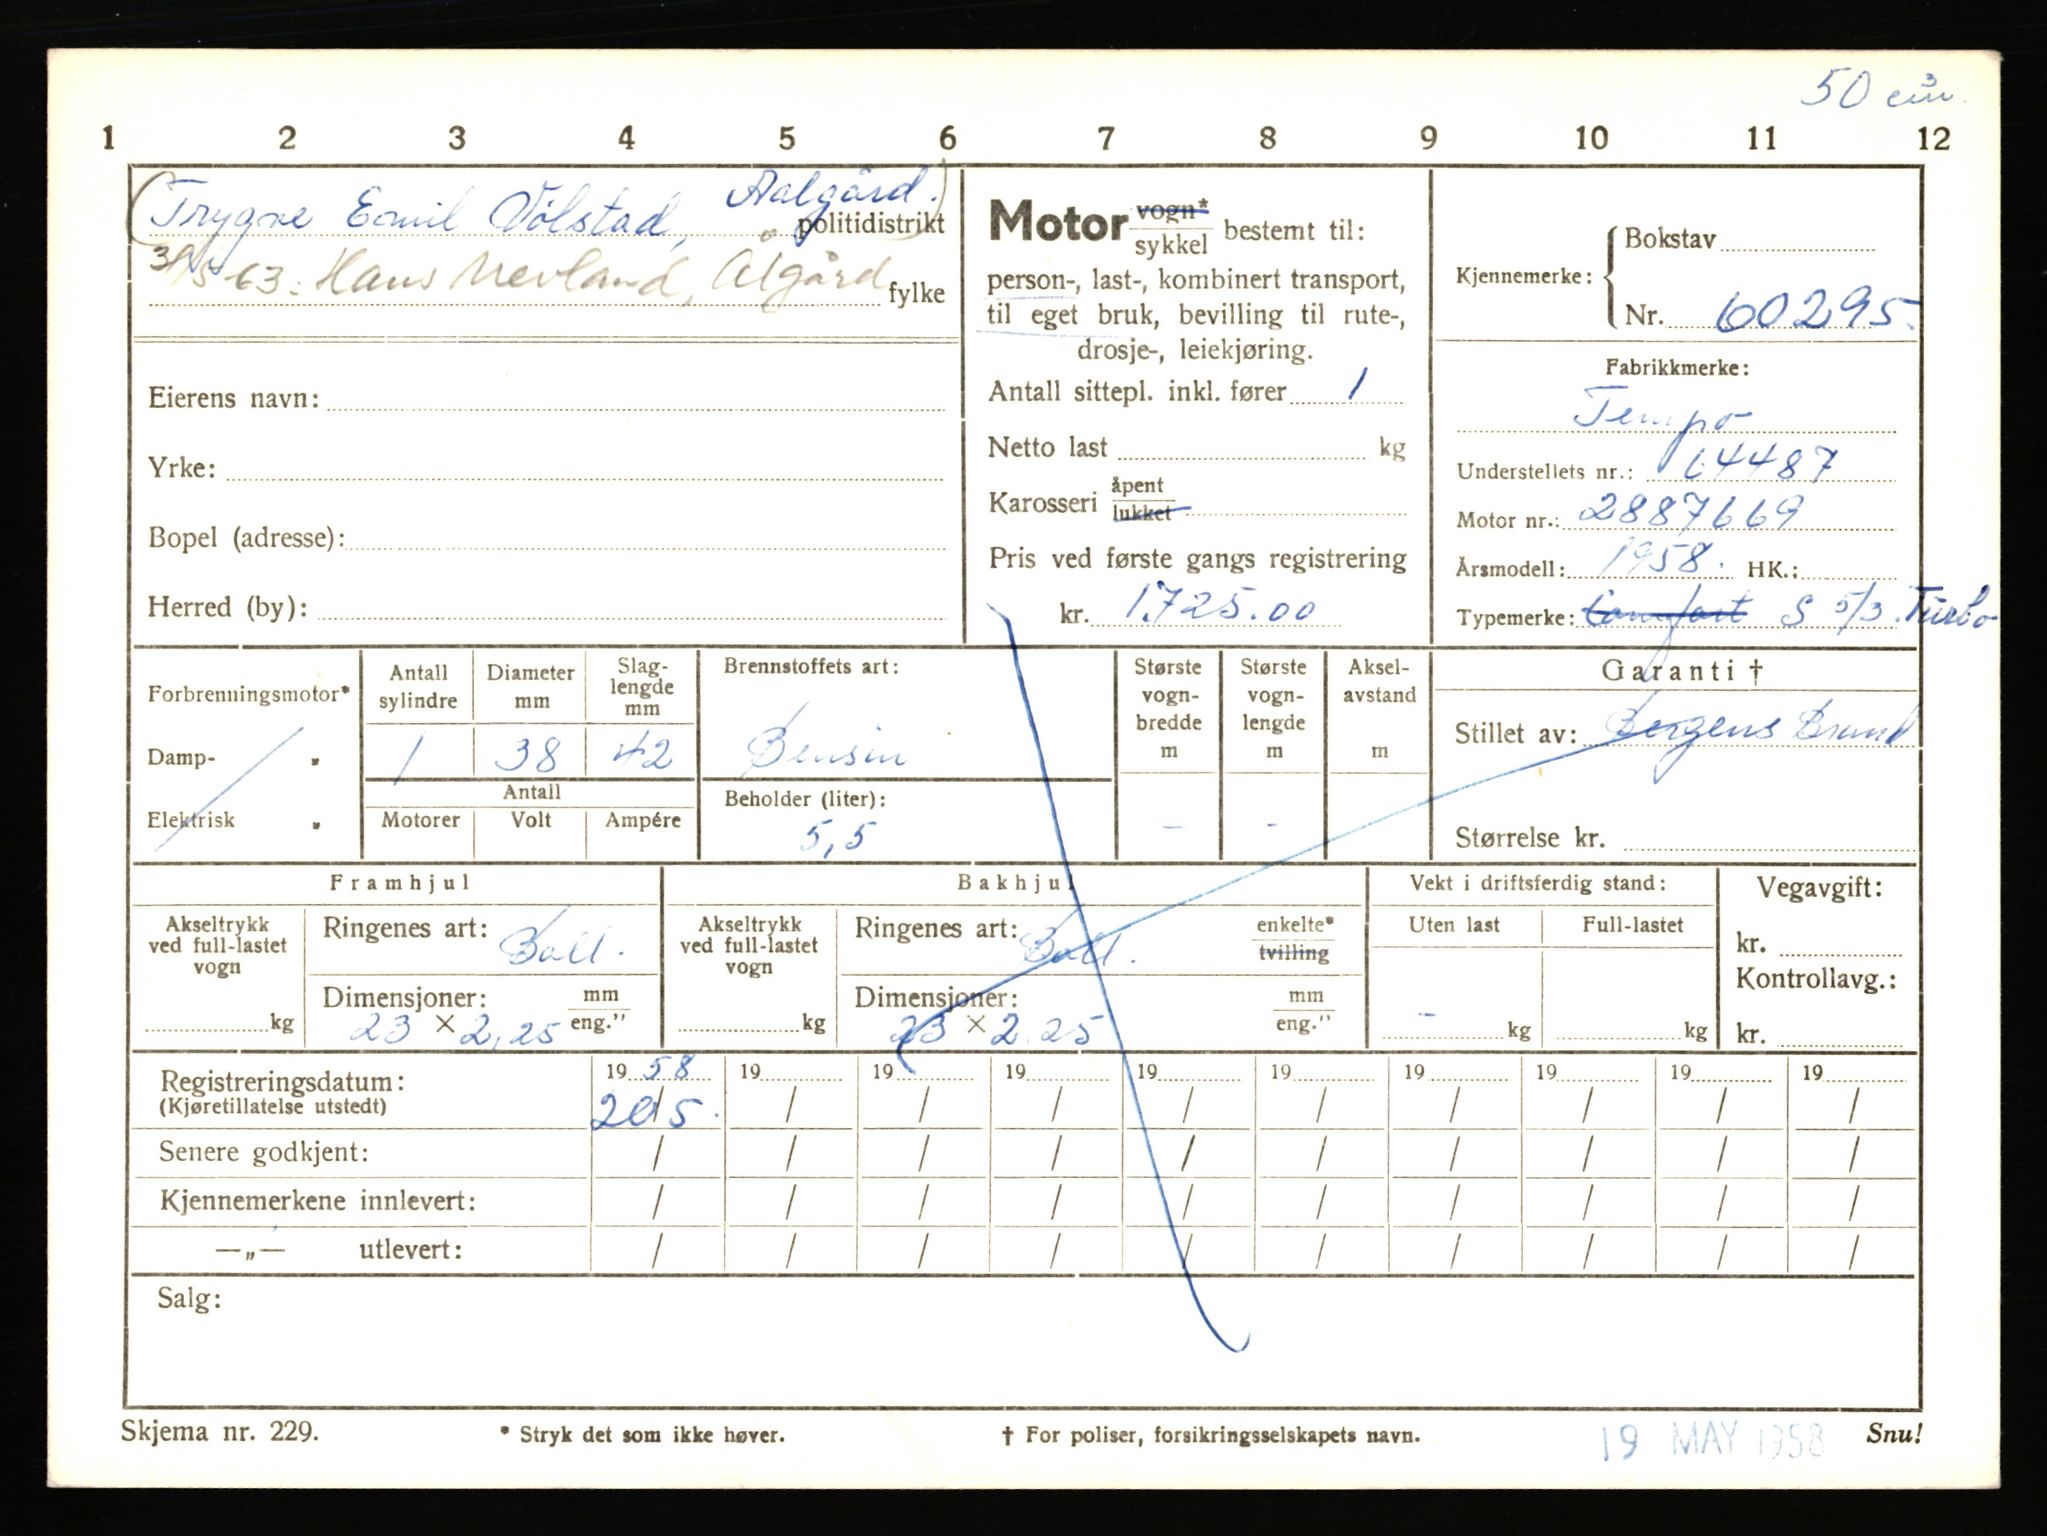 50 cm³
1 2 3 4 5 6 7 8 9 10 11 12
(Trygve Emil Vølstad, Aalgård.)
politidistrikt
3/5-63: Hans Nevland, Ålgård
fylke
Eierens navn:
Yrke:
Bopel (adresse):
Herred (by):
Motor vogn* sykkel bestemt til:
person-, last-, kombinert transport,
til eget bruk, bevilling til rute-,
drosje-, leiekjøring.
Antall sittepl. inkl. fører 1
Netto last kg
Karosseri åpent lukket
Pris ved første gangs registrering
kr. 1.725.00
Kjennemerke: Bokstav
Nr. 60295.
Fabrikkmerke:
Tempo
Understellets nr.: 64487
Motor nr.: 2887669
Årsmodell: 1958. HK.:
Typemerke: Comfort S 5/3. Turbo
Forbrenningsmotor*
Damp- „
Elektrisk „
Antall sylindre
Diameter mm
Slag-lengde mm
1 38 42
Antall
Motorer Volt Ampére
Brennstoffets art:
Bensin
Beholder (liter):
5,5
Største vogn-bredde m
Største vogn-lengde m
Aksel-avstand m
- -
Garanti †
Stillet av: Bergens Brand
Størrelse kr.
Framhjul
Akseltrykk ved full-lastet vogn
kg
Ringenes art: Ball.
Dimensjoner: mm eng."
23 × 2,25
Bakhjul
Akseltrykk ved full-lastet vogn
kg
Ringenes art: Ball. enkelte* tvilling
Dimensjoner: mm eng."
23 × 2.25
Vekt i driftsferdig stand:
Uten last Full-lastet
- kg kg
Vegavgift:
kr.
Kontrollavg.:
kr.
Registreringsdatum: 19 58 19 19 19 19 19 19 19 19 19
(Kjøretillatelse utstedt) 20/5. / / / / / / / / /
Senere godkjent: / / / / / / / / / /
Kjennemerkene innlevert: / / / / / / / / / /
—„— utlevert: / / / / / / / / / /
Salg:
Skjema nr. 229. * Stryk det som ikke høver. † For poliser, forsikringsselskapets navn. 19 MAY 1958 Snu!